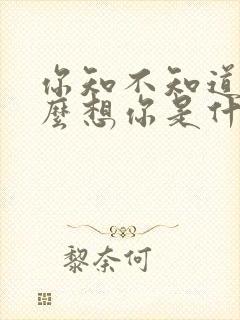 你知不知道
麼想你是什
黎奈何